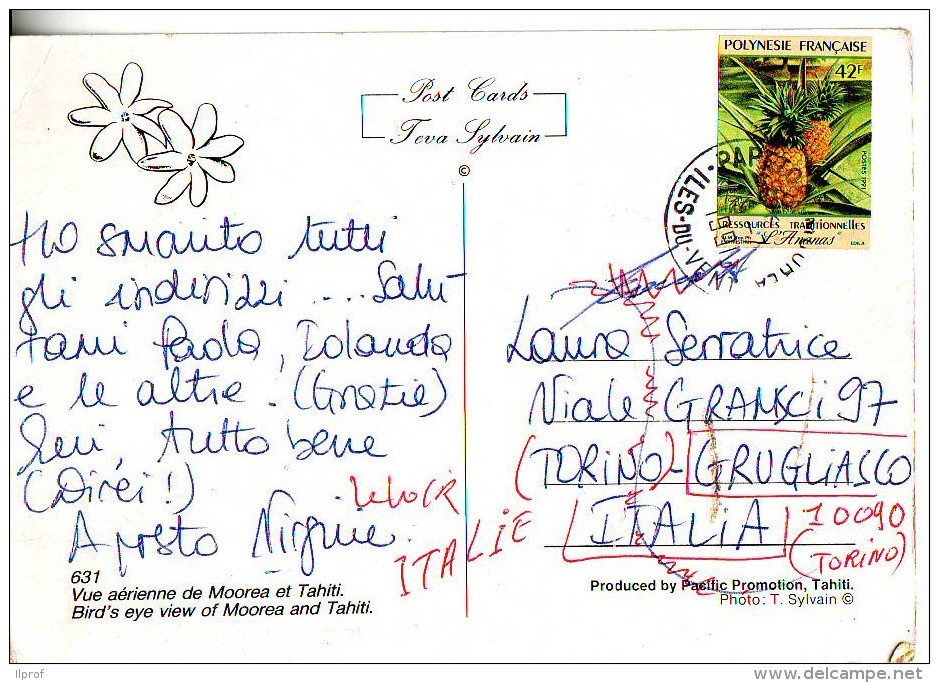 Post Cards
Teva Sylvain
©
POLYNESIE FRANÇAISE
42F
POSTES 1991
RESSOURCES TRADITIONNELLES
"L'Ananas"
ILES-DU-VENT
Ho smarrito tutti
gli indirizzi.... Salu-
tami Paola, Iolanda
e le altre! (Grazie)
Qui, tutto bene
(Direi!)
A presto Virginie
Laura Serratrice
Viale GRAMSCI 97
(TORINO - GRUGLIASCO
ITALIA
10090
(TORINO)
ITALIE
631
Vue aérienne de Moorea et Tahiti.
Bird's eye view of Moorea and Tahiti.
Produced by Pacific Promotion, Tahiti.
Photo: T. Sylvain ©
Ilprof
delcampe.net